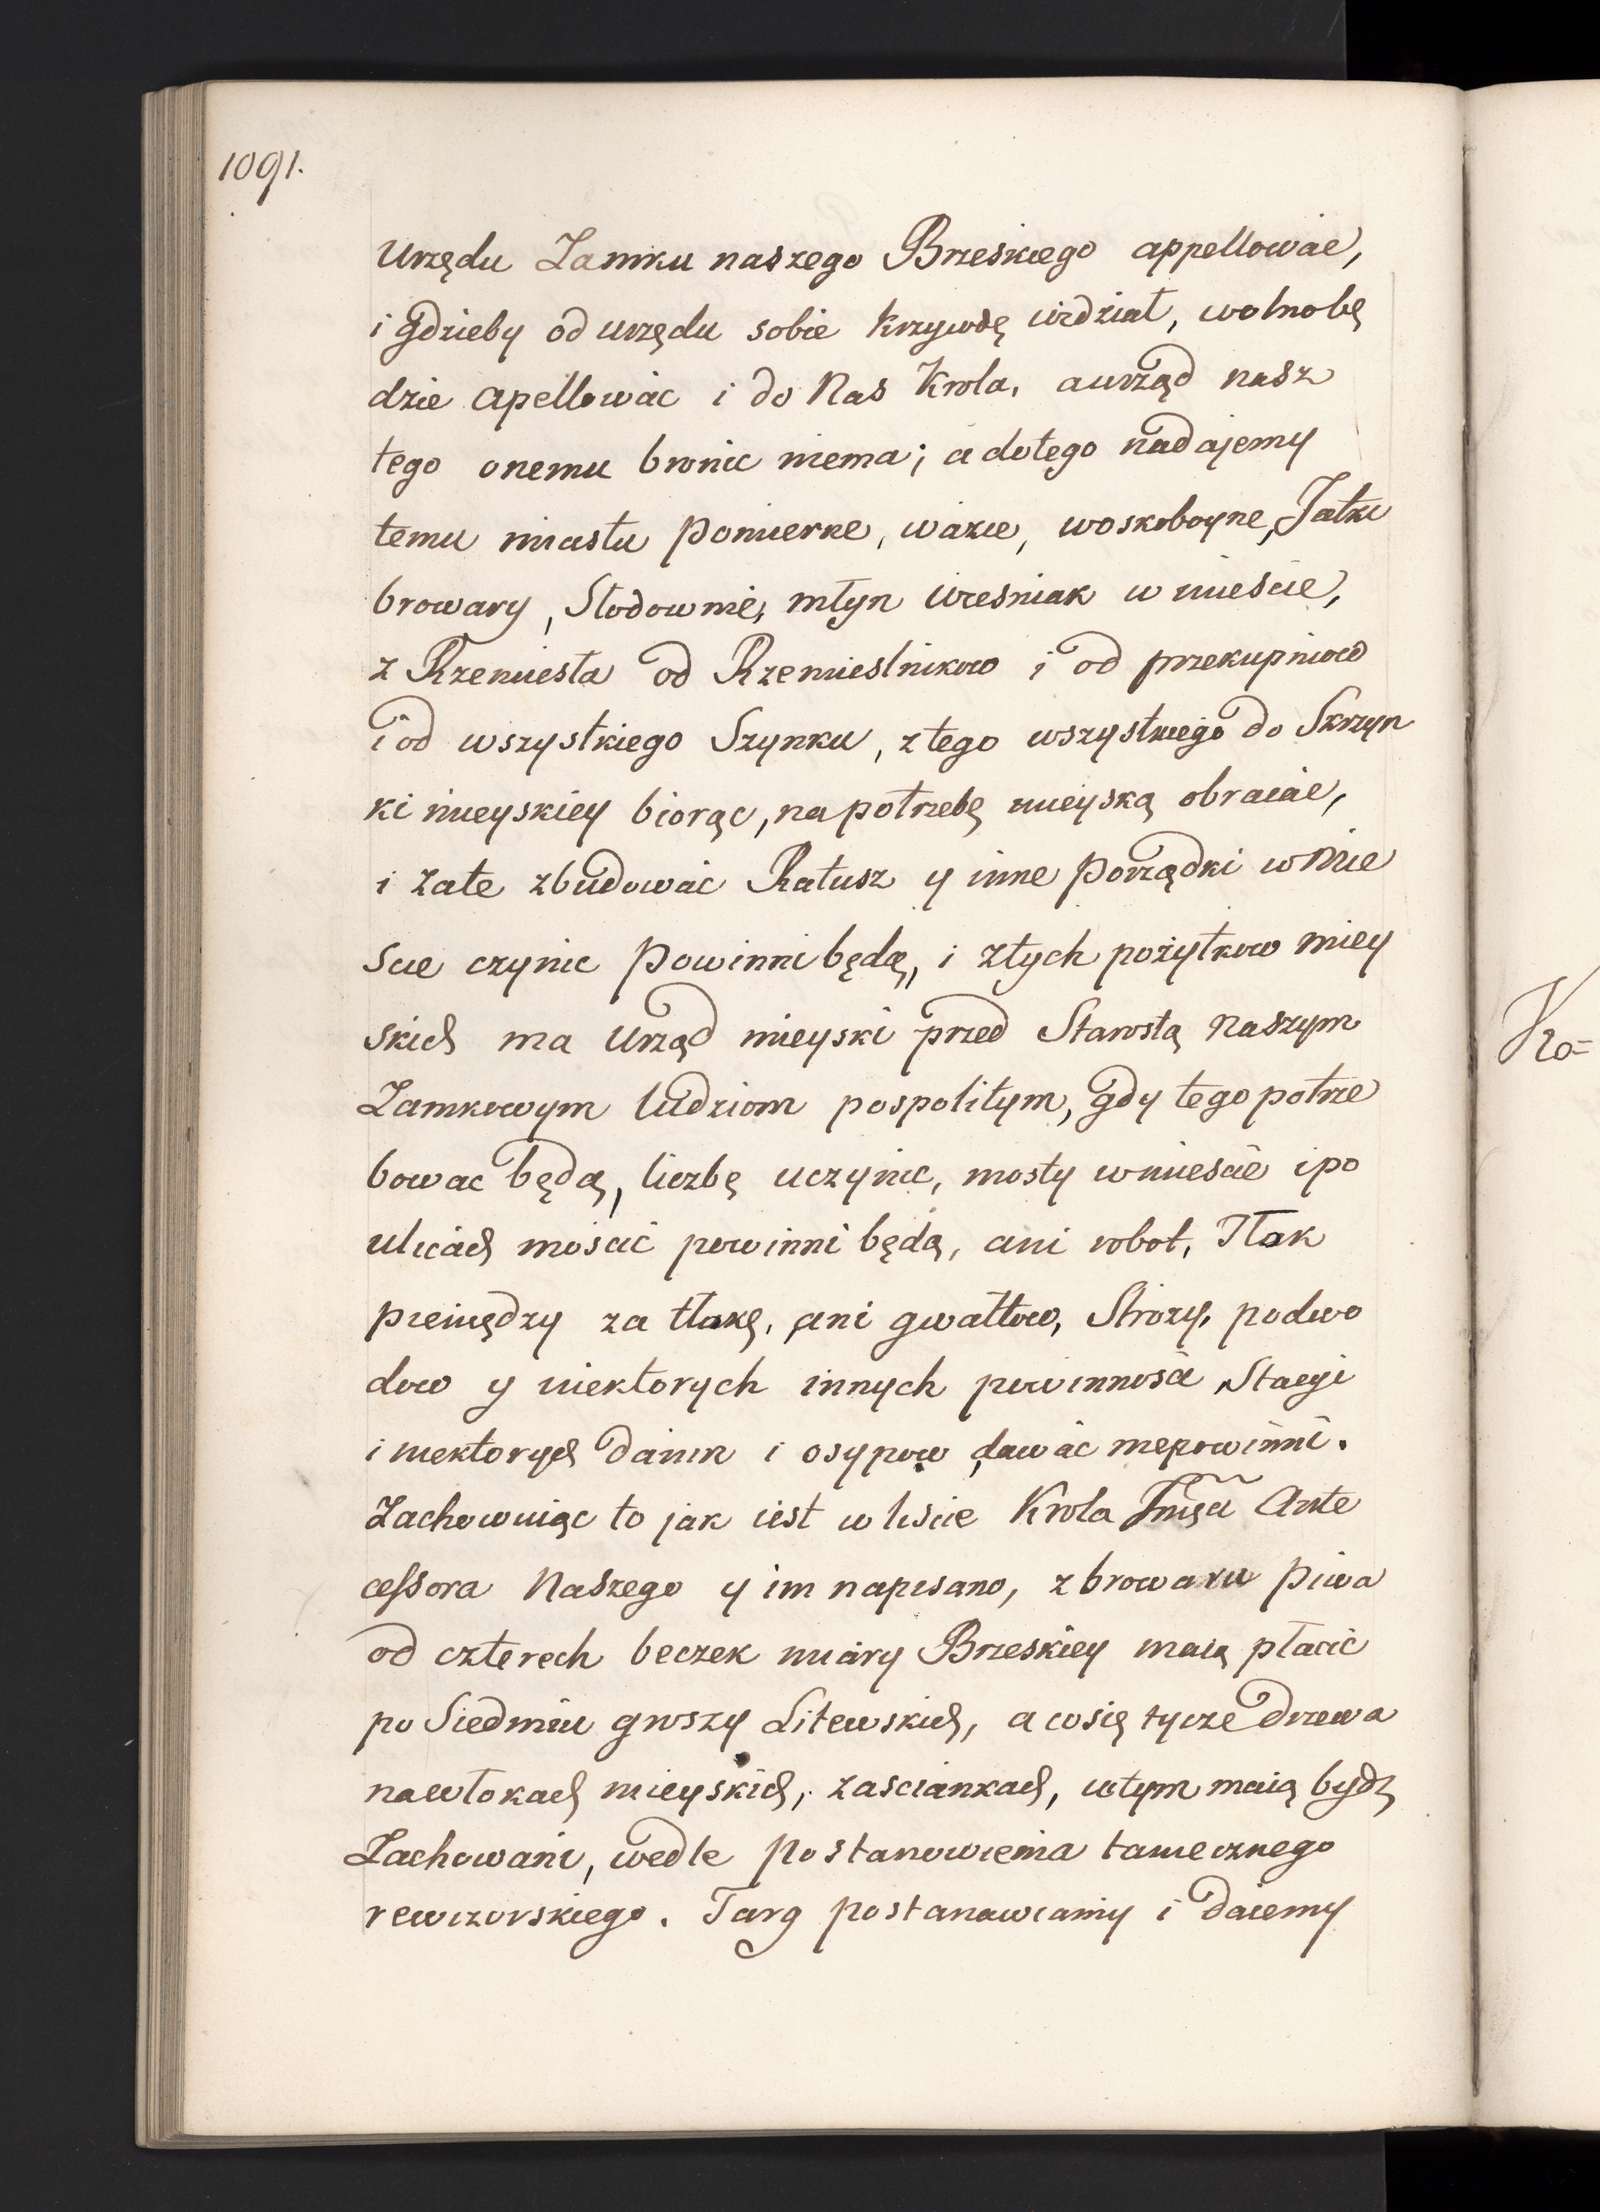 1091.
Urzędu Zamku naszego Brzeskiego appellować,
i gdzieby od urzędu sobie krzywdę widział, wolno bę
dzie apellować i do Nas Krola, a urząd nasz
tego onemu bronic niema; a do tego nadajemy
temu miastu pomierne, ważne, woskoboyne, Jatki
browary, Słodownie, młyn wieśniak w mieście,
z Rzemiesła od Rzemieslnikow i od przekupniow
i od wszystkiego Szynku, z tego wszystkiego do Skrzyn
ki mieyskiey biorąc, na potrzebę mieyską obracać,
i zate zbudować Ratusz y inne porządki w Mie
scie czynic powinni będą, i z tych pożytkow miey
skich ma Urząd mieyski przed Starostą Naszym
Zamkowym ludziom pospolitym, gdy tego potrze
bowac będą, liczbę uczynic, mosty w mieście i po
ulicach mościć powinni będą, ani robot, Tłok
pieniędzy za tłokę, ani gwałtow, Strozy, podwo
dow y niektorych innych powinnośći Stacyi
i niektorych danin i osypow dawać niepowinni.
Zachowuiąc to jak iest w liscie Krola Jmsći Ante
cessora Naszego y im napisano, z browaru piwa
od czterech beczek miary Brzeskiey maią płacić
po Siedmiu groszy Litewskich, a co się tycze drzewa
na włokach mieyskich, zasciankach, w tym maią bydz
Zachowani, wedle postanowienia tamecznego
rewizorskiego. Targ postanawiamy i daiemy
Ko=